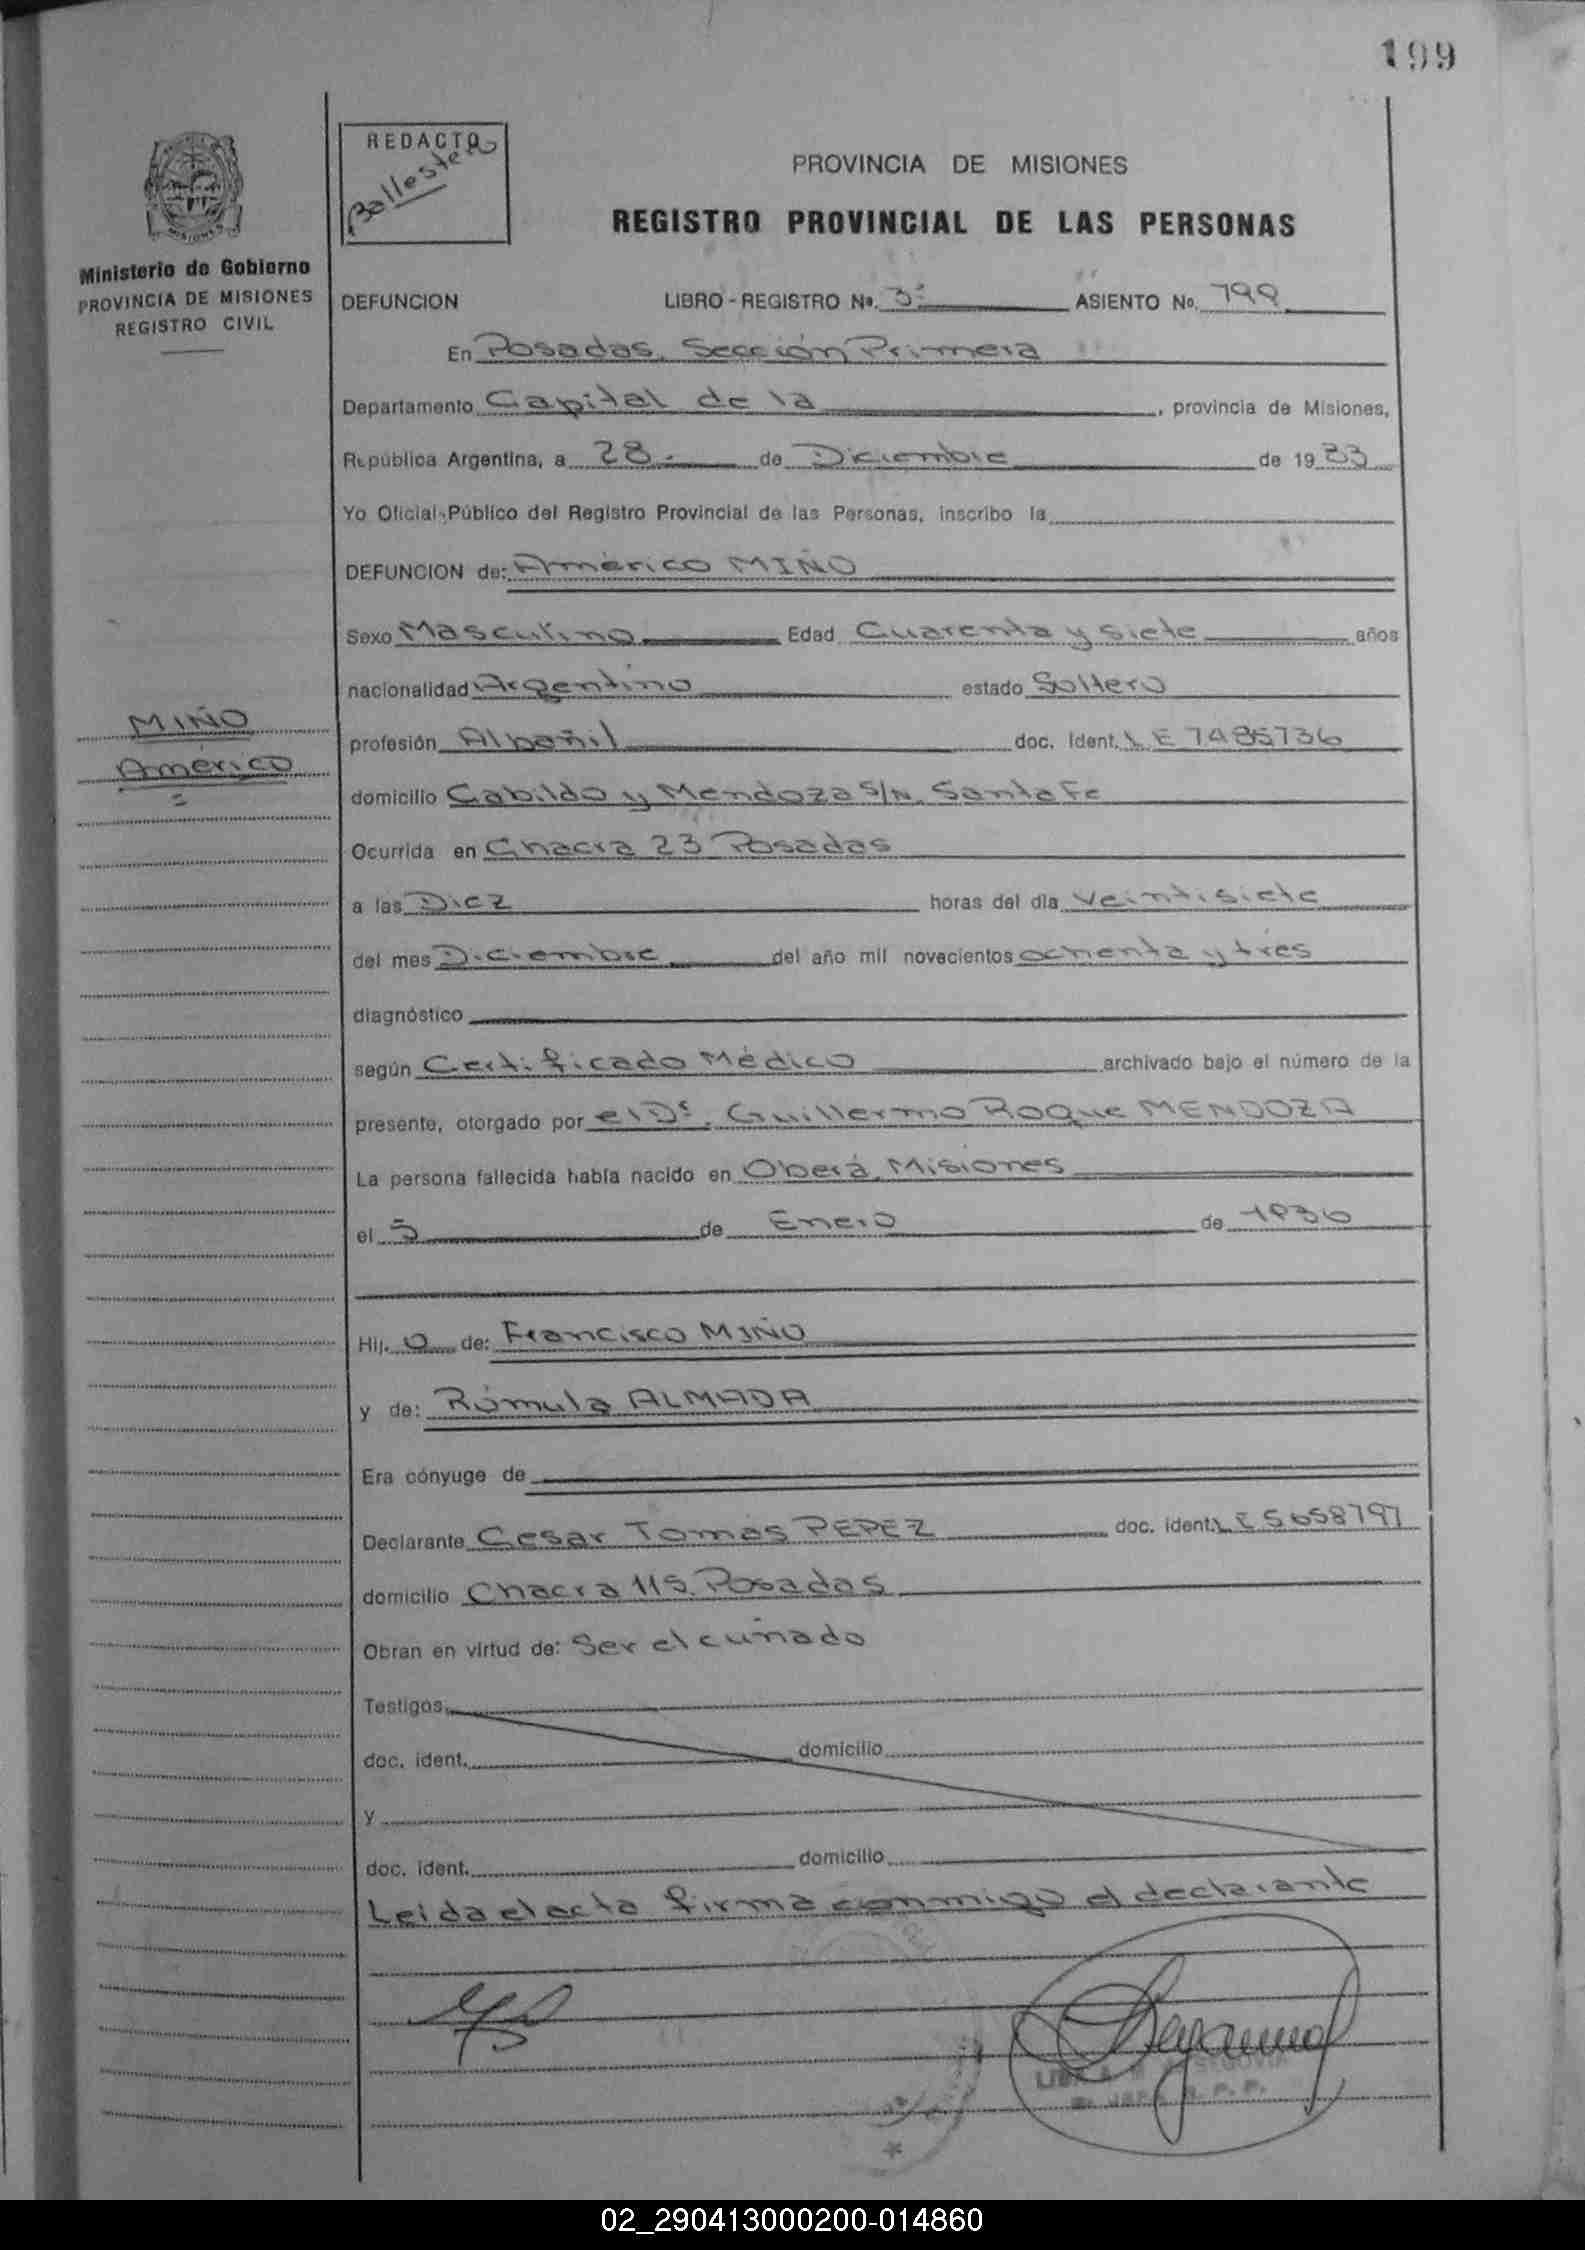 199
REDACTO
Ballestero
PROVINCIA DE MISIONES
REGISTRO PROVINCIAL DE LAS PERSONAS
MISIONES
Ministerio de Gobierno
PROVINCIA DE MISIONES
REGISTRO CIVIL
DEFUNCION LIBRO - REGISTRO No. 3: ASIENTO No. 799
En Posadas, Sección Primera
Departamento Capital de la, provincia de Misiones,
República Argentina, a 28.- de Diciembre de 1983
Yo Oficial Público del Registro Provincial de las Personas, inscribo la
DEFUNCION de: Américo MIÑO
Sexo Masculino Edad Cuarenta y Siete años
nacionalidad Argentino estado Soltero
MIÑO
Américo
profesión Albañil doc. Ident. LE 7485736
domicilio Cabildo y Mendoza S/N. Santa Fe
Ocurrida en Chacra 23 Posadas
a las Diez horas del día veintisiete
del mes Diciembre del año mil novecientos ochenta y tres
diagnóstico
según Certificado Médico archivado bajo el número de la
presente, otorgado por el Dr. Guillermo Roque MENDOZA
La persona fallecida había nacido en Oberá, Misiones
el 5 de Enero de 1936
Hij. o de: Francisco MIÑO
y de: Rómula ALMADA
Era cónyuge de
Declarante Cesar Tomás PEPEZ doc. ident. LE 5658797
domicilio Chacra 115. Posadas
Obran en virtud de: Ser el cuñado
Testigos
doc. ident. domicilio
y
doc. ident. domicilio
Leida el acta firma conmigo el declarante
SEGOVIA